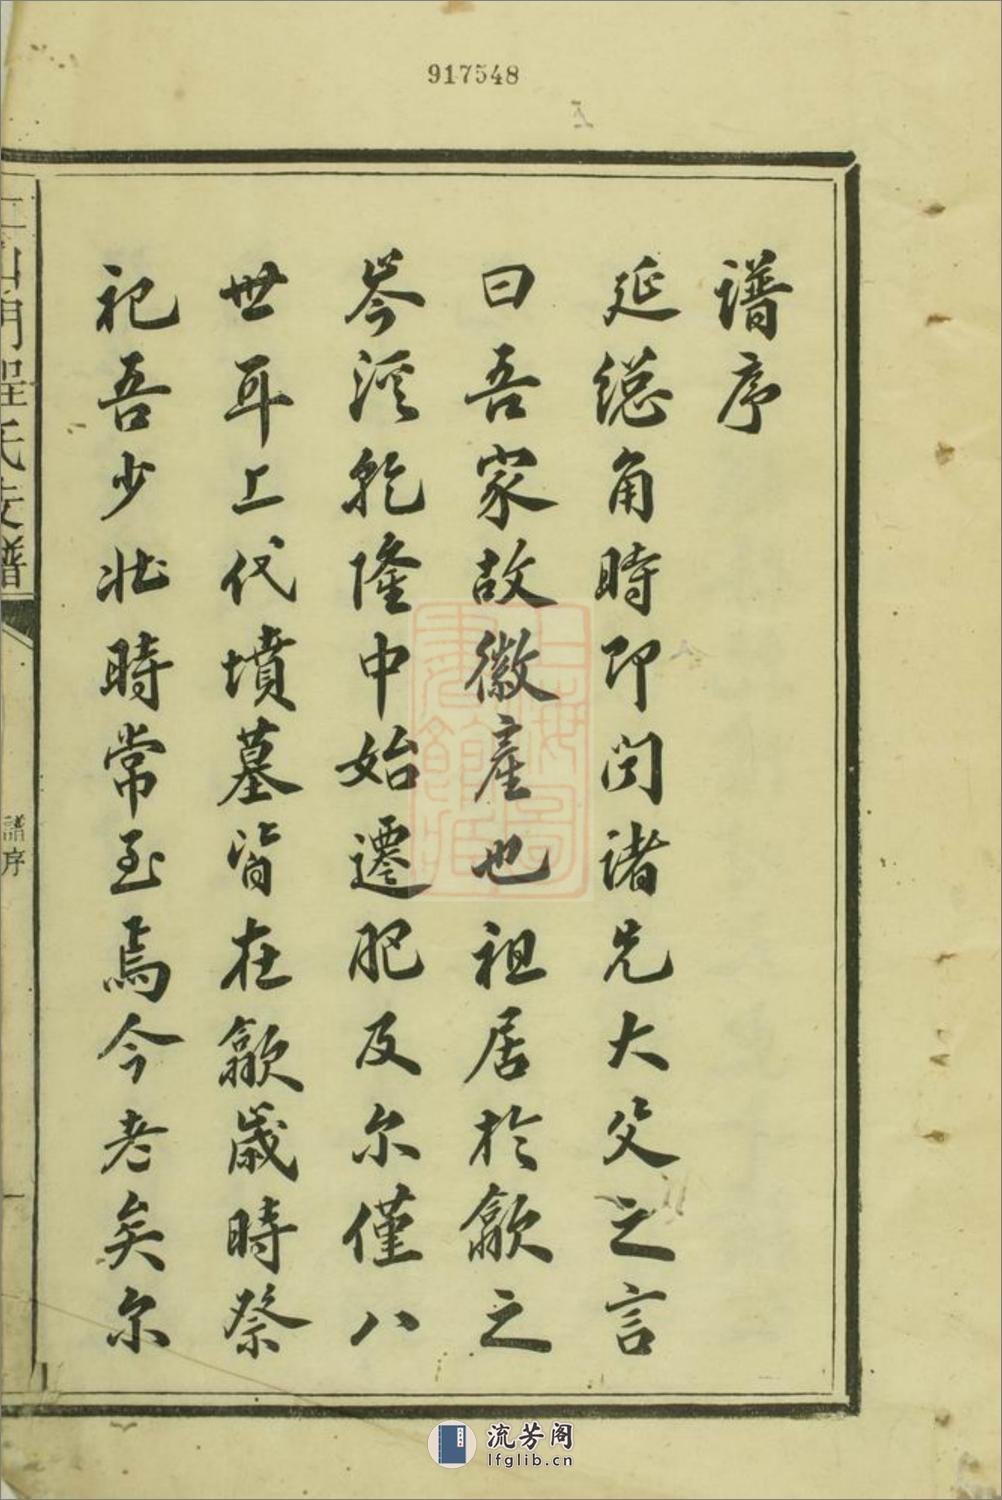 917548
譜序
延總角時即闻諸兄大父之言
曰吾家故徽産也祖居於歙之
岑渓乾隆中始遷肥及尔僅八
世耳上代墳墓皆在歙歲時祭
祀吾少壯時常至焉今老矣尔
氏支譜
譜序
一
上海圖書館藏
流芳阁
lfglib.cn